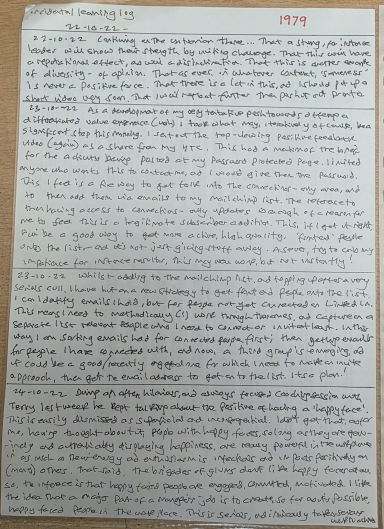 incidental learning log
22-10-22 -
1979
22-10-22 Continuing on the criterion theme... That a strong, for instance
leader will show their strength by inviting challenge. That this will have
a reputational effect, as will a disinclination. That this is another example
of diversity - of opinion. That as ever, in whatever context, 'sameness'
is never a positive force. That there is a lot in this, and I should put up a
short video up soon. That I was
23-10-22 As a development of my very tentative push towards offering a
differentiated value experience I took what may, iteratively of course, be a
significant step this morning. I sent out the top-loading positive feedback
video (again) as a share from my YTC. This had a mention of the brief
for the activity being posted at my Password Protected Page. I invited
anyone who wants this to contact me, and I would give them the password.
This I feel is a fine way to get folk into the connections-only area, and
to then add them via emails to my mailchimp list. The reference to
then having access to connections-only updates is enough of a reason for
me to feel this is a legitimate subscriber addition. This, if I get it right,
will be a good way to get more active, high quality, 'funded' people
onto the list - and it's not just giving stuff away. As ever, try to curb my
impatience for instance results. This may well work, but not instantly!
23-10-22 Whilst adding to the mailchimp list, and topping up after a very
serious cull, I have hit on a new strategy to get folk onto the list.
I can identify emails I hold, but for people not yet connected on Linked In.
This means I need to methodically (!) work through them, and capture on a
separate list relevant people who I need to connect or invite at least. In this
way I am sorting emails held for connected people first; then getting emails
for people I have connected with, and now, a third group is emerging, and
it could be a good/recently for which I need to make an invite
approach, then get the email address to get onto the list. It's a plan!
24-10-22 Dump an often hilarious, and always focused Conversation with
Terry last week he kept talking about the positive of having a 'happy face'.
This is easily dismissed as superficial and inconsequential. I don't get that as for
me, having thought about it, people with happy faces, so long as they are genu-
inely and authentically displaying happiness, are really powerful in the workplace
in as much as their energy and enthusiasm is infectious and impacts positively on
(many) others. That said, the brigades of glums don't like happy faces
so, the inference is that happy faced people are engaged, committed, motivated. I like
the idea that a major part of a manager's job is to create, so far as it's possible,
happy faced people in the work place. This is serious, and